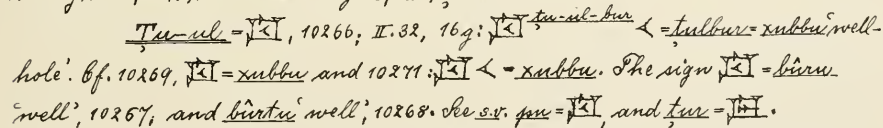 Ṭu-ul = 𒇥, 10266; II. 32, 16g: 𒇥 ṭu-ul-bur 𒌋 = ṭulbur = xubbu 'well-
hole'. Cf. 10269, 𒇥 = xubbu and 10271: 𒇥 𒌋 = xubbu. The sign 𒇥 = bûru
'well', 10267; and bûrtu 'well', 10268. See s.v. pu = 𒇥, and ṭur =